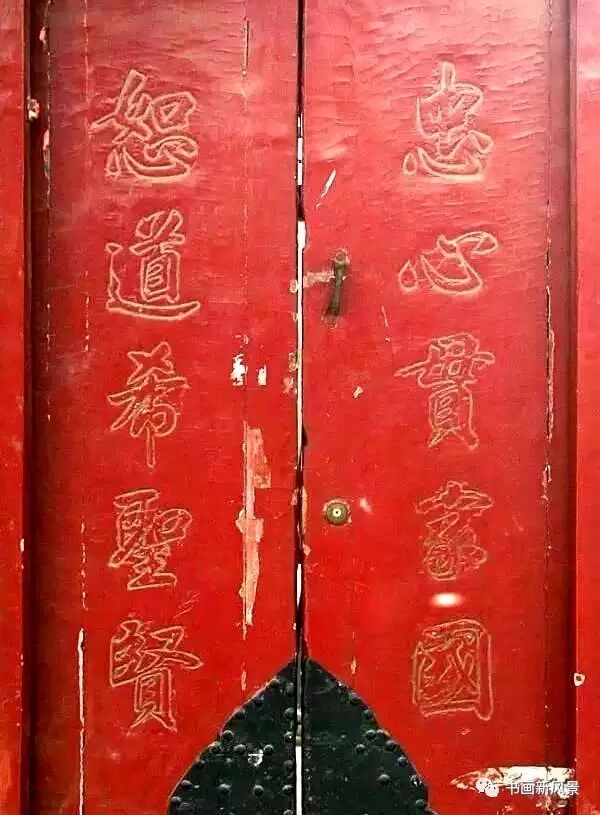 忠心貫家國
恕道希聖賢
书画新风景